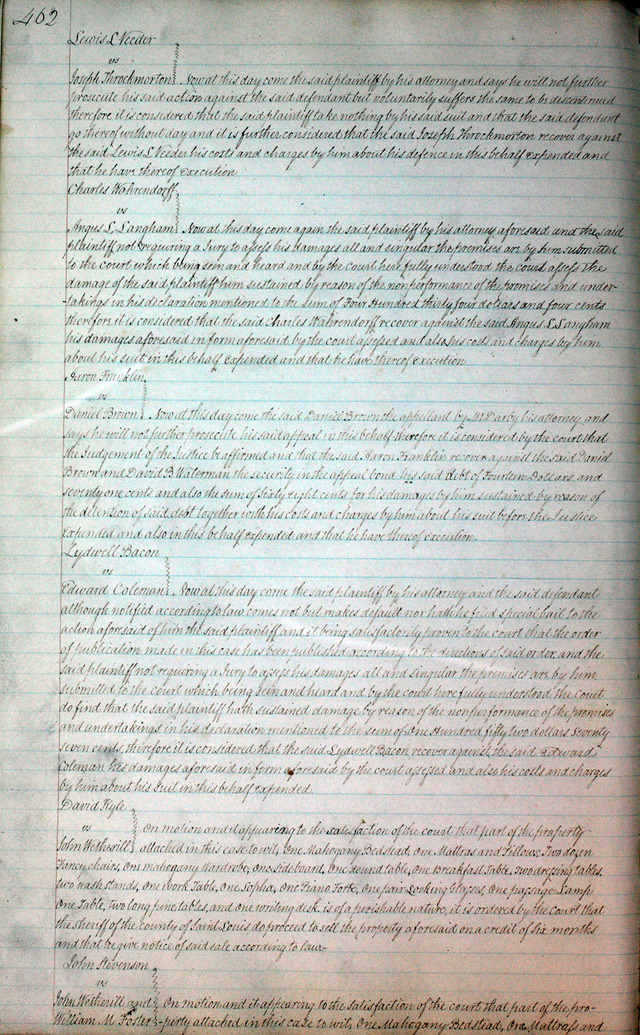 462
Lewis L Veeder
vs
Joseph Throckmorton Now at this day come the said plaintiff by his attorney and says he will not further
prosecute his said action against the said defendant but voluntarily suffers the same to be discontinued
therefore it is considered that the said plaintiff take nothing by his said suit and that the said defendant
go thereof without day and it is further considered that the said Joseph Throckmorton recover against
the said Lewis L Veeder his costs and charges by him about his defence in this behalf expended and
that he have thereof execution
Charles Wahrendorff
vs
Angus L. Langham Now at this day come again the said plaintiff by his attorney aforesaid and the said
plaintiff not requiring a Jury to assess his damages all and singular the premises are by him submitted
to the court which being seen and heard and by the court here fully understood the court assess the
damage of the said plaintiff him sustained by reason of the nonperformance of the promises and under-
-takings in his declaration mentioned to the sum of Four Hundred thirty four dollars and four cents
therefore it is considered that the said Charles Wahrendorff recover against the said Angus L Langham
his damages aforesaid in form aforesaid by the court assessed and also his costs and charges by him
about his suit in this behalf expended and that he have thereof execution
Aaron Franklin
vs
Daniel Brown Now at this day come the said Daniel Brown the appellant by Darby his attorney and
says he will not further prosecute his said appeal in this behalf therefore it is considered by the court that
the Judgement of the Justice be affirmed and that the said Aaron Franklin recover against the said Daniel
Brown and David B Waterman the security in the appeal bond his said debt of Fourteen Dollars and
seventy one cents and also the sum of Sixty eight cents for his damages by him sustained by reason of
the detension of said debt together with his costs and charges by him about his suit before the Justice
expended and also in this behalf expended and that he have thereof execution.
Lydwell Bacon
vs
Edward Coleman Now at this day come the said plaintiff by his attorney and the said defendant
although notified according to law comes not but makes default nor hath he filed special bail to the
action aforesaid of him the said plaintiff and it being satisfactorily proven to the court that the order
of publication made in this case has been published according to the directions of said order, and the
said plaintiff not requiring a Jury to assess his damages all and singular the premises are by him
submitted to the court which being seen and heard and by the court here fully understood the Court
do find that the said plaintiff hath sustained damage by reason of the nonperformance of the promises
and undertakings in his declaration mentioned to the sum of One Hundred fifty two dollars Seventy
seven cents, therefore it is considered that the said Lydwell Bacon recover against the said Edward
Coleman his damages aforesaid in form aforesaid by the court assessed and also his costs and charges
by him about his suit in this behalf expended.
David Kyle
vs On motion and it appearing to the satisfaction of the court that part of the property
John Wetherill attached in this case to wit, One Mahogany Bedstead, One Mattras and Pillows, Two dozen
Fancy chairs, One mahogany Wardrobe, One Sideboard, One Round table, One Breakfast Table, Two dressing tables,
two wash stands, One Work Table, One Sopha, One Piano Forte, One pair Looking Glasses, One passage Lamp
One Table, two long pine tables, and One writing desk is of a perishable nature, it is ordered by the court that
the Sheriff of the county of Saint Louis do proceed to sell the property aforesaid on a credit of six months
and that he give notice of said sale according to law.
John Stevenson
vs
John Wetherill and On motion and it appearing to the satisfaction of the court that part of the pro-
William M Foster -perty attached in this case to wit, One Mahogany Bedstead, One Mattrass and